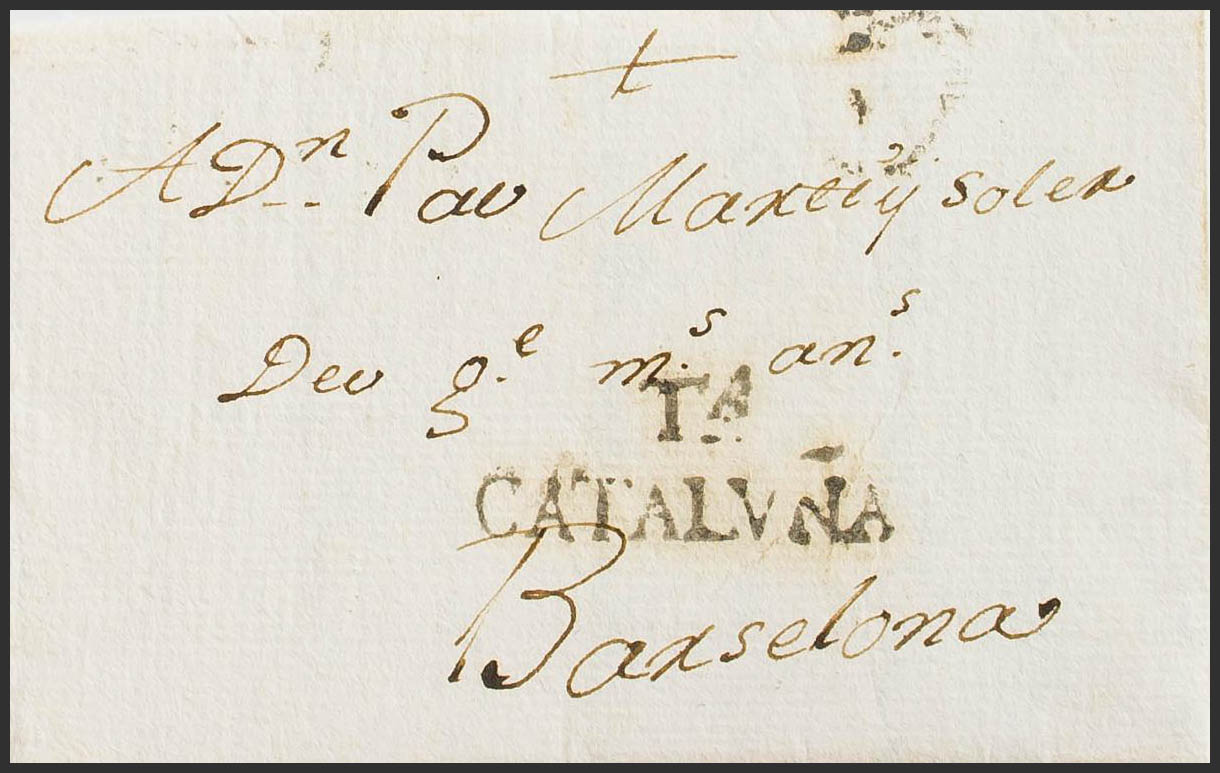 A Dn Pau Martiy soler
Deu g.e m.s an.s
TA
CATALVÑA
Barselona